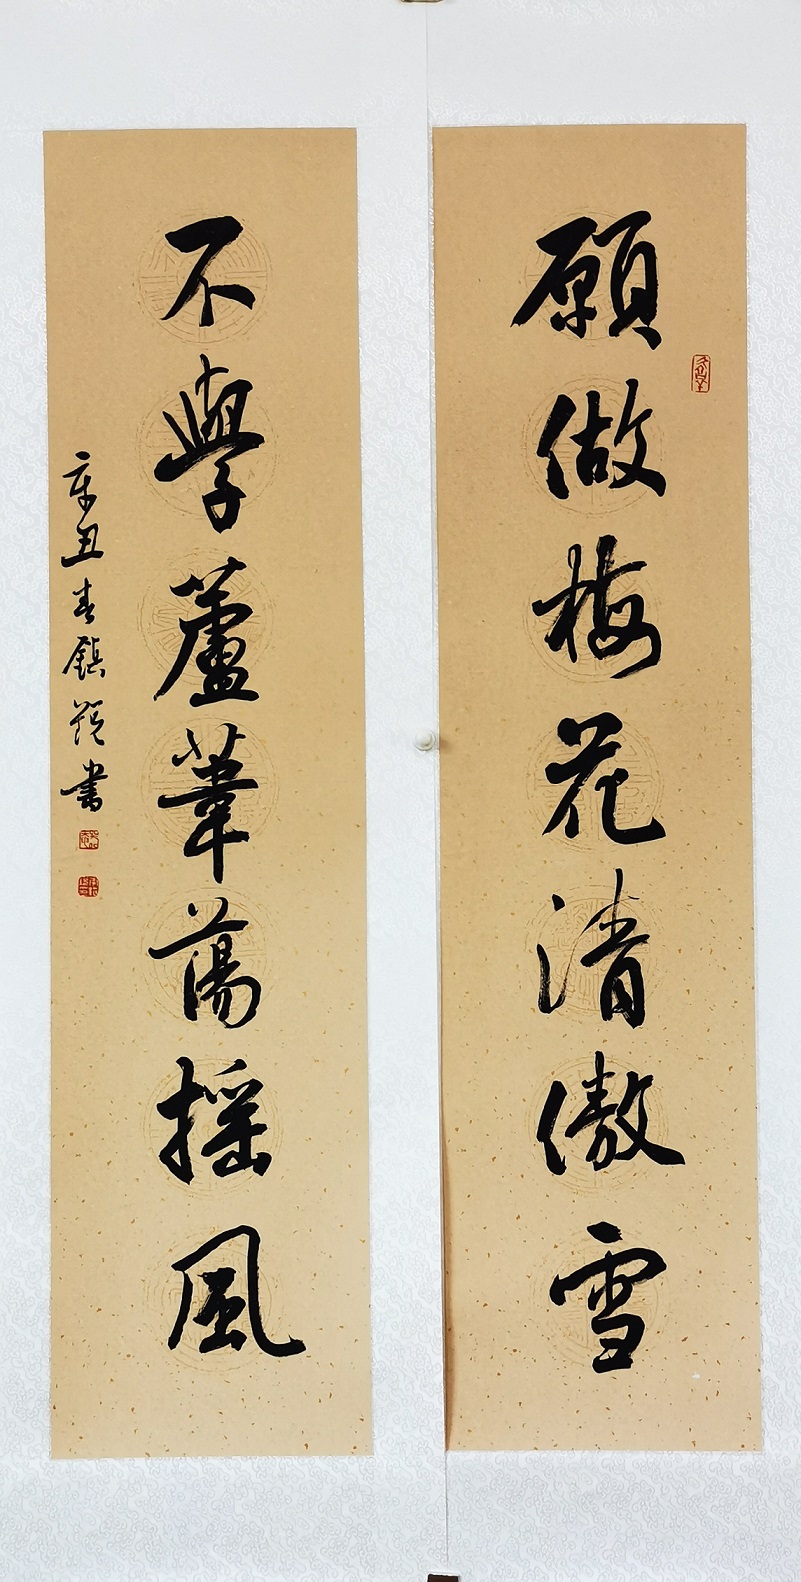 願做梅花清傲雪
不學蘆葦蕩摇風
辛丑春鎮
書